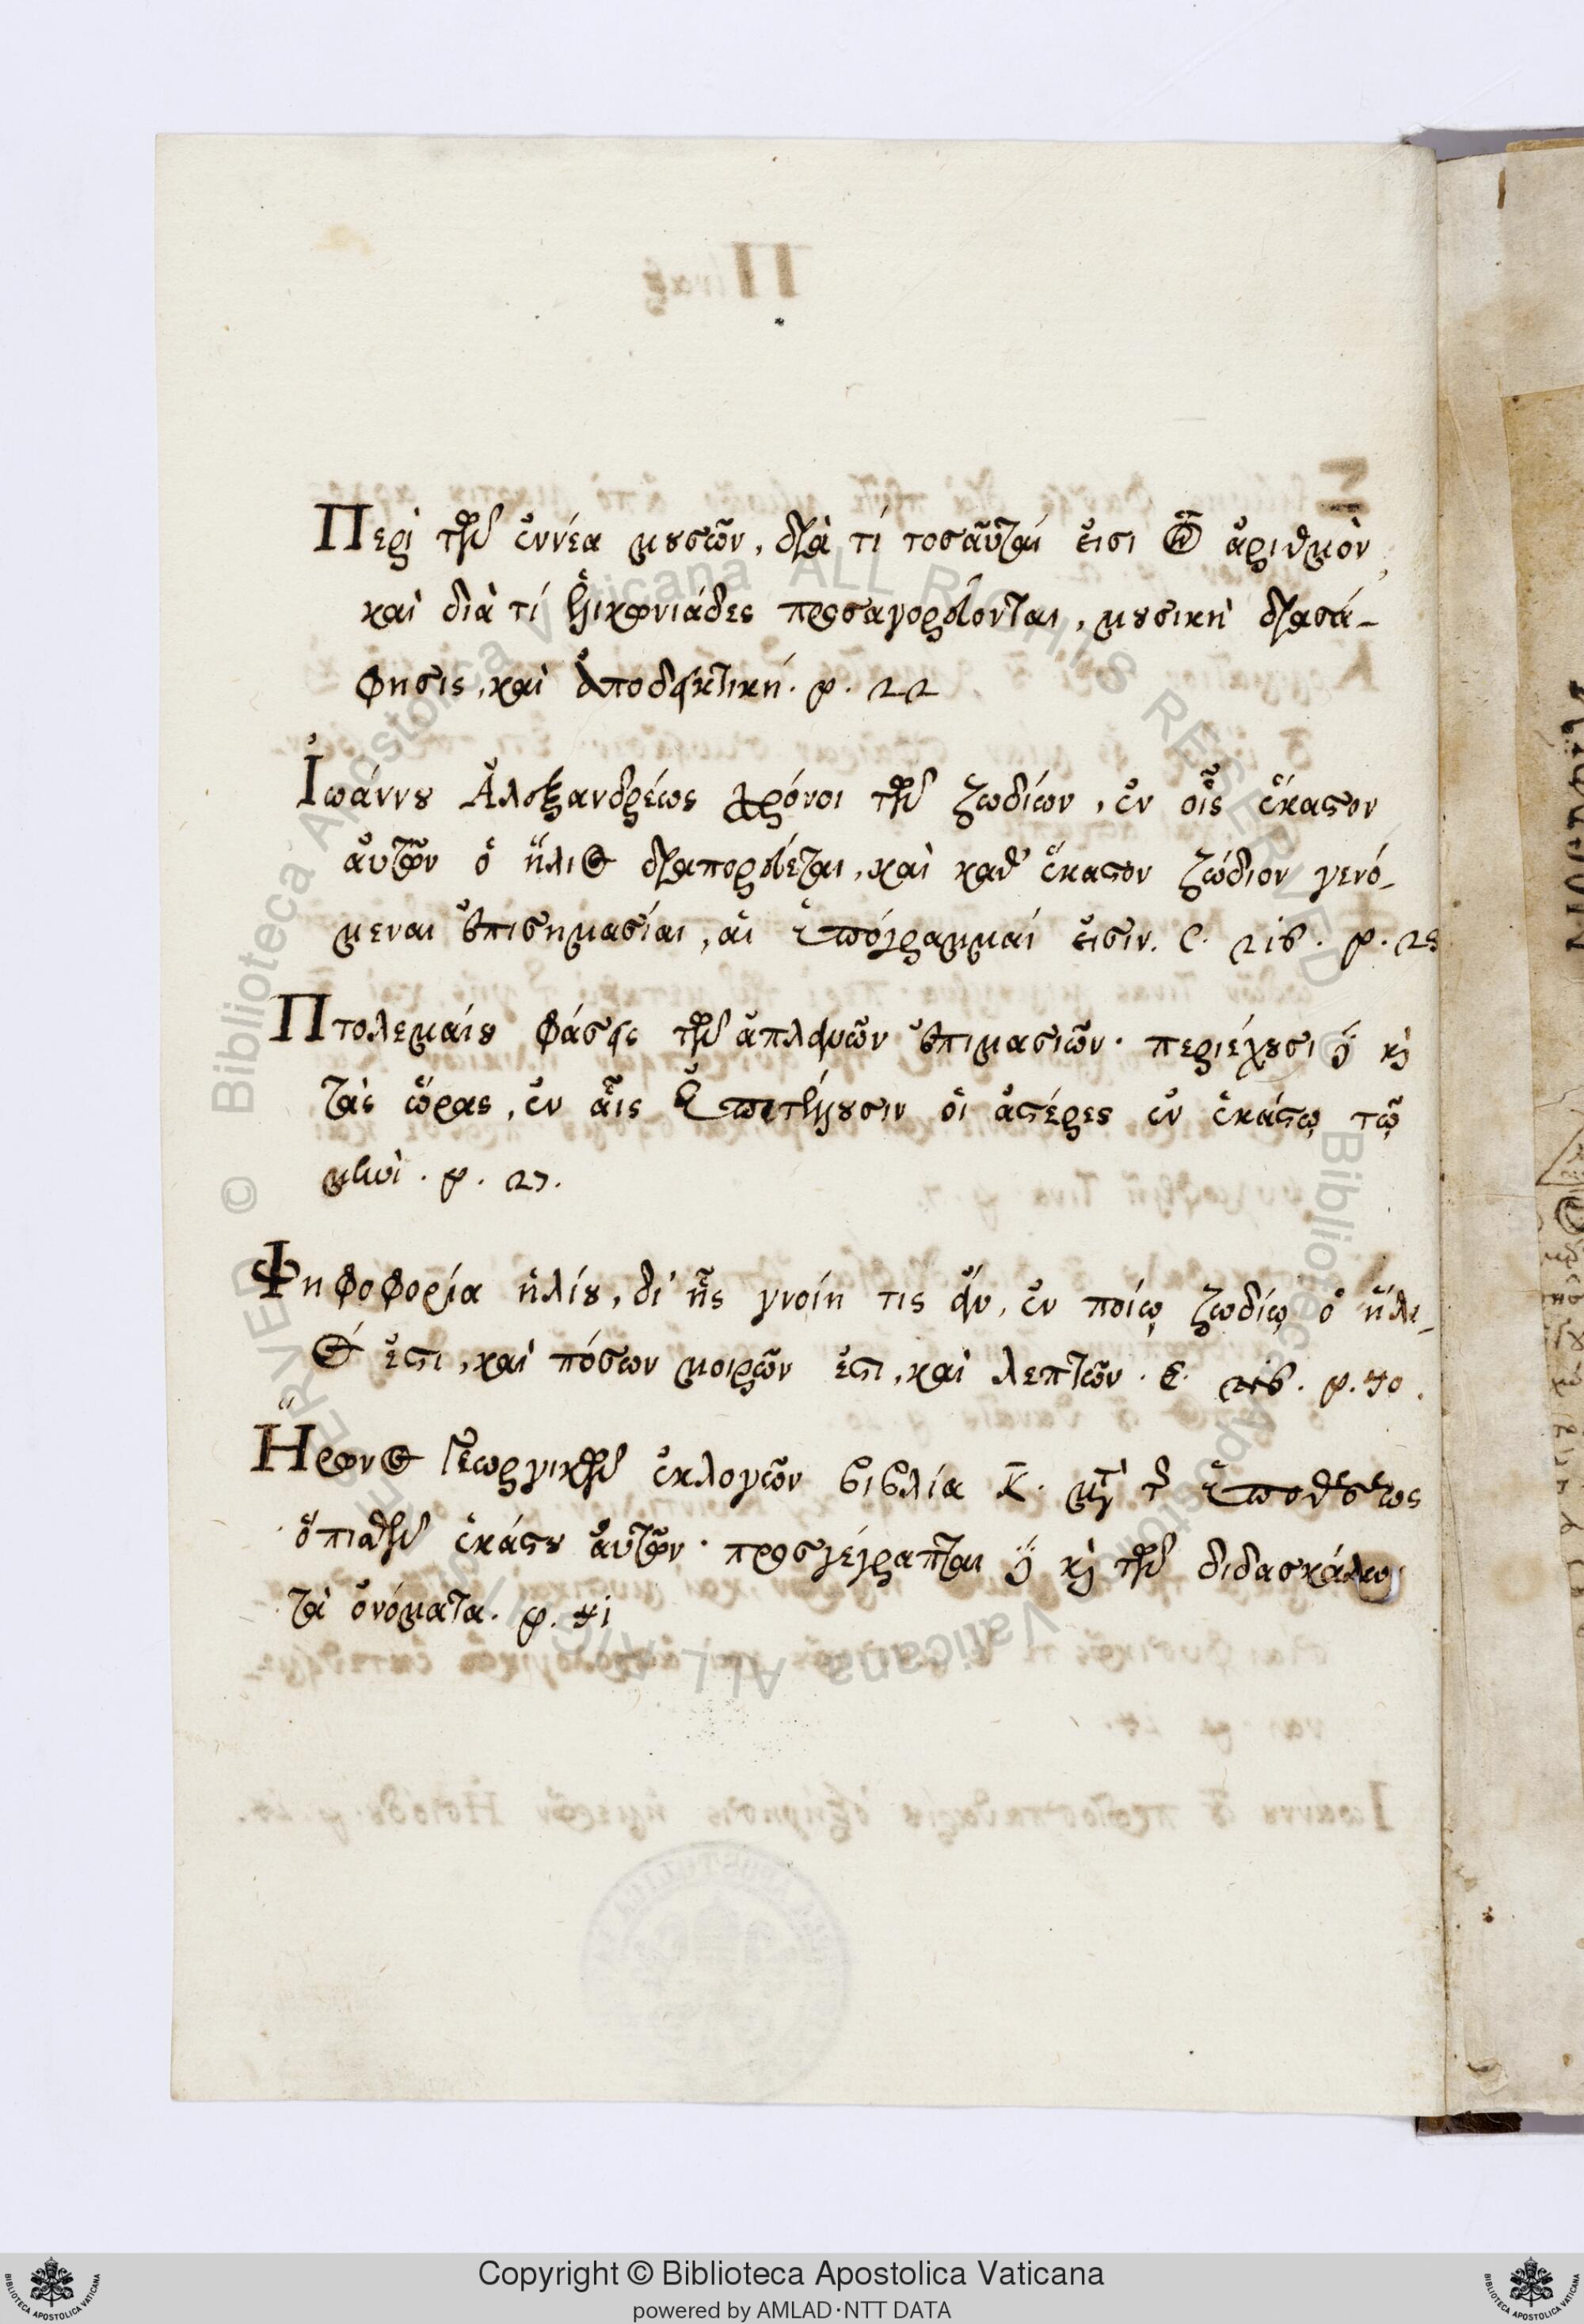 Περὶ τῶν ἐννέα μουσῶν, διὰ τί τοσαῦταί εἰσι τὸν ἀριθμὸν,
καὶ διὰ τί Ἑλικωνιάδες προσαγορεύονται, μουσικὴ διασά-
φησις, καὶ ἀποδεικτική. φ. 22
Ἰωάννου Ἀλεξανδρέως χρόνοι τῶν ζωδίων, ἐν οἷς ἕκαστον
αὐτῶν ὁ ἥλιος διαπορεύεται, καὶ καθ' ἕκαστον ζώδιον γενό-
μεναι ἐπισημασίαι, αἱ ὑπόγραμμαί εἰσιν. φ. 28
Πτολεμαίου φάσεις τῶν ἀπλανῶν ἐπιμασιῶν. περιέχουσι δὲ καὶ
τὰς ὥρας, ἐν αἷς οἱ ἀστέρες ἐν ἑκάστῳ τῷ
μηνὶ. φ. 27.
Ψηφοφορία ἡλίου, δι' ἧς γνοίη τις ἂν, ἐν ποίῳ ζωδίῳ ὁ ἥλι-
ός ἐστι, καὶ πόσων μοιρῶν ἐστι, καὶ λεπτῶν. φ. 40.
Ἥρωνος Γεωργικῶν ἐκλογῶν βιβλία Κ. μετὰ τῆς ὑποθέσεως
ὄπισθεν ἑκάστου αὐτῶν. προσγέγραπται δὲ καὶ τῶν διδασκάλων
τὰ ὀνόματα. φ. 41
Copyright © Biblioteca Apostolica Vaticana
powered by AMLAD·NTT DATA